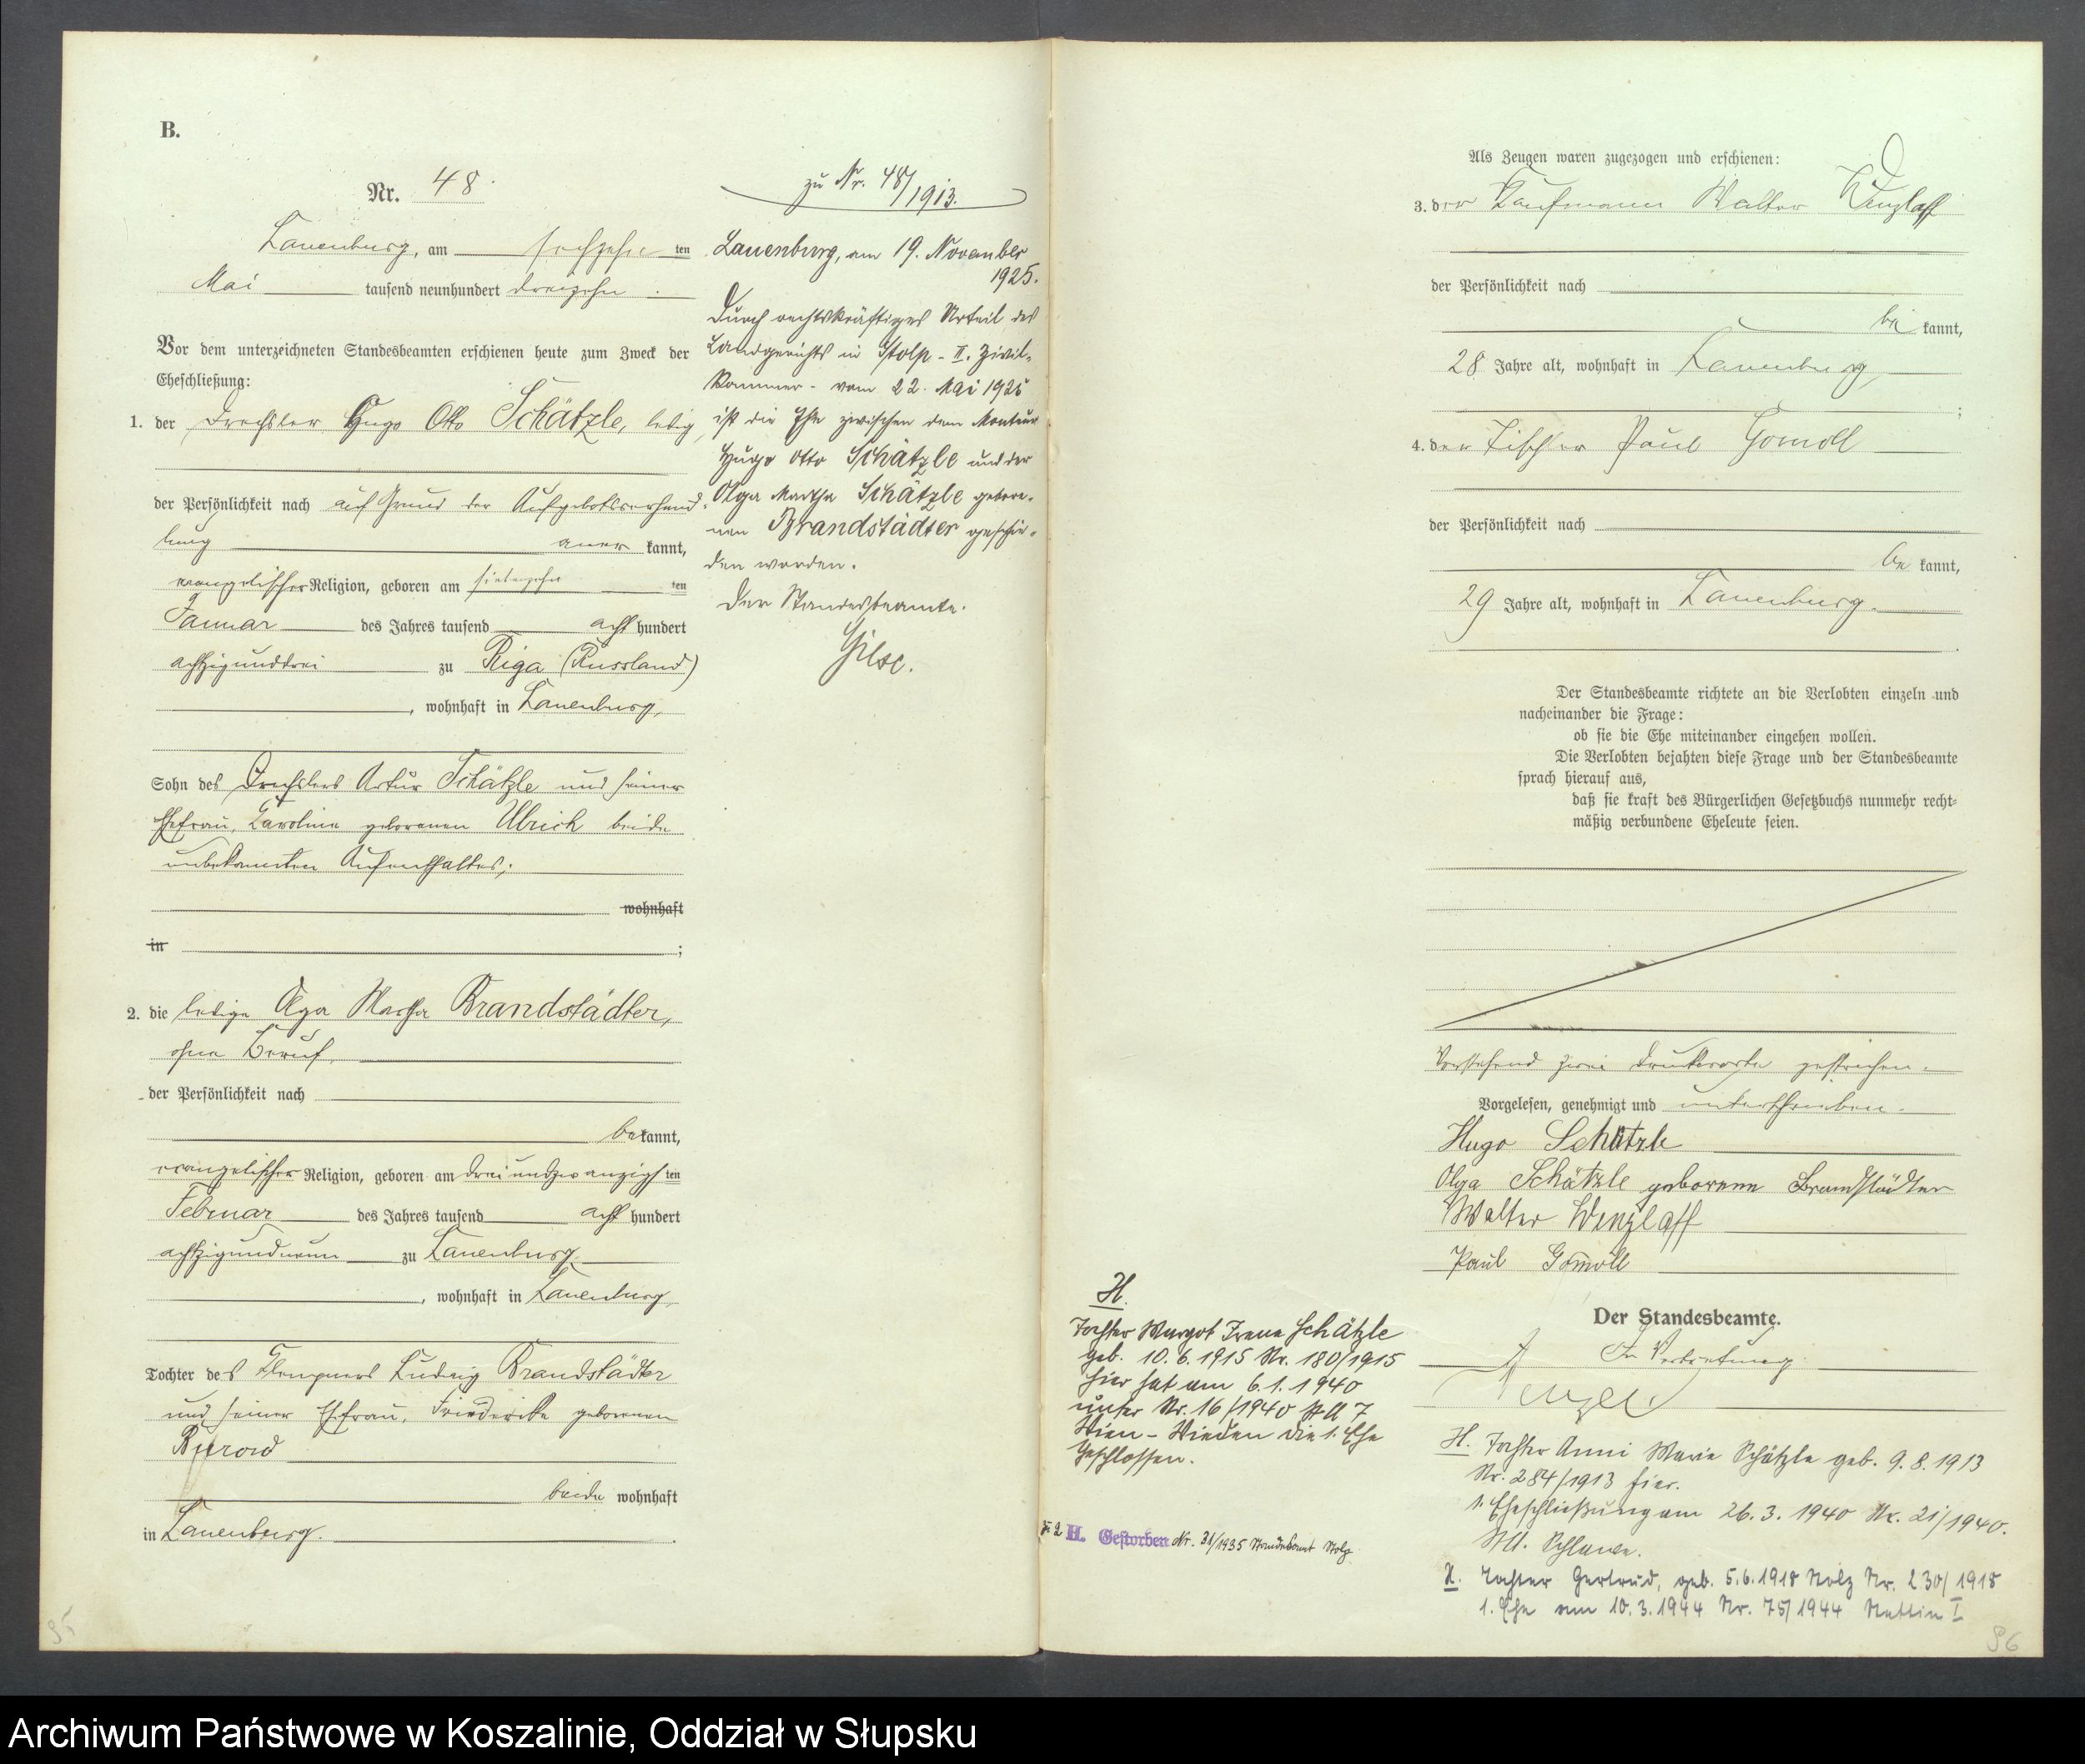 B.
Nr. 48.
Lauenburg, am sechzehnten
Mai tausend neunhundert dreizehn.
Vor dem unterzeichneten Standesbeamten erschienen heute zum Zweck der
Eheschließung:
1. der Drechsler Hugo Otto Schätzle, ledig,
der Persönlichkeit nach auf Grund der Aufgebotsverhand-
lung anerkannt,
evangelischer Religion, geboren am siebenzehnten
Januar des Jahres tausend achthundert
achtzigunddrei zu Riga (Russland)
, wohnhaft in Lauenburg,
Sohn des Drechslers Artur Schätzle und seiner
Ehefrau, Karoline geborenen Ulrich beide
unbekannten Aufenthaltes;
wohnhaft
in ;
2. die ledige Olga Martha Brandstädter,
ohne Beruf,
der Persönlichkeit nach
bekannt,
evangelischer Religion, geboren am dreiundzwanzigsten
Februar des Jahres tausend achthundert
achtzigundneun zu Lauenburg
, wohnhaft in Lauenburg,
Tochter des Klempners Ludwig Brandstädter
und seiner Ehefrau, Friederike geborenen
beide wohnhaft
in Lauenburg.
zu Nr. 48/1913.
Lauenburg, am 19. November
1925.
Durch rechtskräftiges Urteil des
Landgerichts in Stolp - II. Zivil-
kammer - vom 22. Mai 1925
ist die Ehe zwischen dem Monteur
Hugo Otto Schätzle und der
Olga Martha Schätzle gebore-
nen Brandstädter geschie-
den worden.
Der Standesbeamte.
Als Zeugen waren zugezogen und erschienen:
3. der Kaufmann Walter Wenzlaff
der Persönlichkeit nach
bekannt,
28 Jahre alt, wohnhaft in Lauenburg,
;
4. der Tischler Paul Gomoll
der Persönlichkeit nach
bekannt,
29 Jahre alt, wohnhaft in Lauenburg.
Der Standesbeamte richtete an die Verlobten einzeln und
nacheinander die Frage:
ob sie die Ehe miteinander eingehen wollen.
Die Verlobten bejahten diese Frage und der Standesbeamte
sprach hierauf aus,
daß sie kraft des Bürgerlichen Gesetzbuchs nunmehr recht-
mäßig verbundene Eheleute seien.
Vorstehend zwei Druckworte gestrichen.
Vorgelesen, genehmigt und unterschrieben.
Hugo Schätzle
Olga Schätzle geborene Brandstädter
Walter Wenzlaff
Paul Gomoll
Der Standesbeamte.
In Vertretung.
H.
Tochter Margot Irene Schätzle
geb. 10.6.1915 Nr. 180/1915
hier hat am 6.1.1940
unter Nr. 16/1940 StA 7
Wien - Wieden die 1. Ehe
geschlossen.
zu 2 H. Gestorben Nr. 31/1935 Standesamt Stolp
H. Tochter Anni Marie Schätzle geb. 9.8.1913
Nr. 284/1913 hier.
1. Eheschließung am 26.3.1940 Nr. 21/1940.
StA. Schlawe.
H. Tochter Gertrud, geb. 5.6.1918 Stolp Nr. 230/1918
1. Ehe am 10.3.1944 Nr. 75/1944 Stettin I
95
96
Archiwum Państwowe w Koszalinie, Oddział w Słupsku